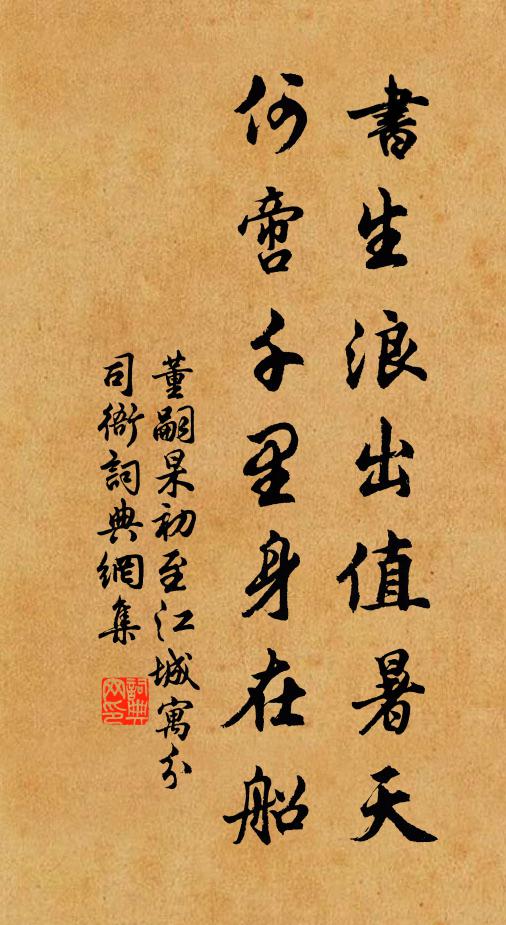 書生浪出值暑天
何啻千里身在船
董嗣杲初至江城寓分
司衙詞典網集
詞典
网印